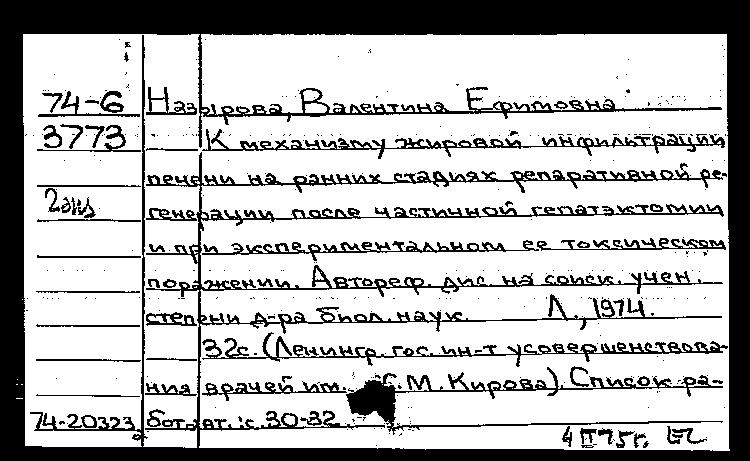 74-6 Назырова, Валентина Ефимовна
3773 К механизму жировой инфильтрации
печени на ранних стадиях репаративной ре-
2 экз генерации после частичной гепатэктомии
и при экспериментальном ее токсическом
поражении. Автореф. дис. на соиск. учен.
степени д-ра биол. наук. Л., 1974.
32с. (Ленингр. гос. ин-т усовершенствова-
ния врачей им. С.М. Кирова). Список ра-
74-20323 бот авт.: с. 30-32.
4 II 75г.